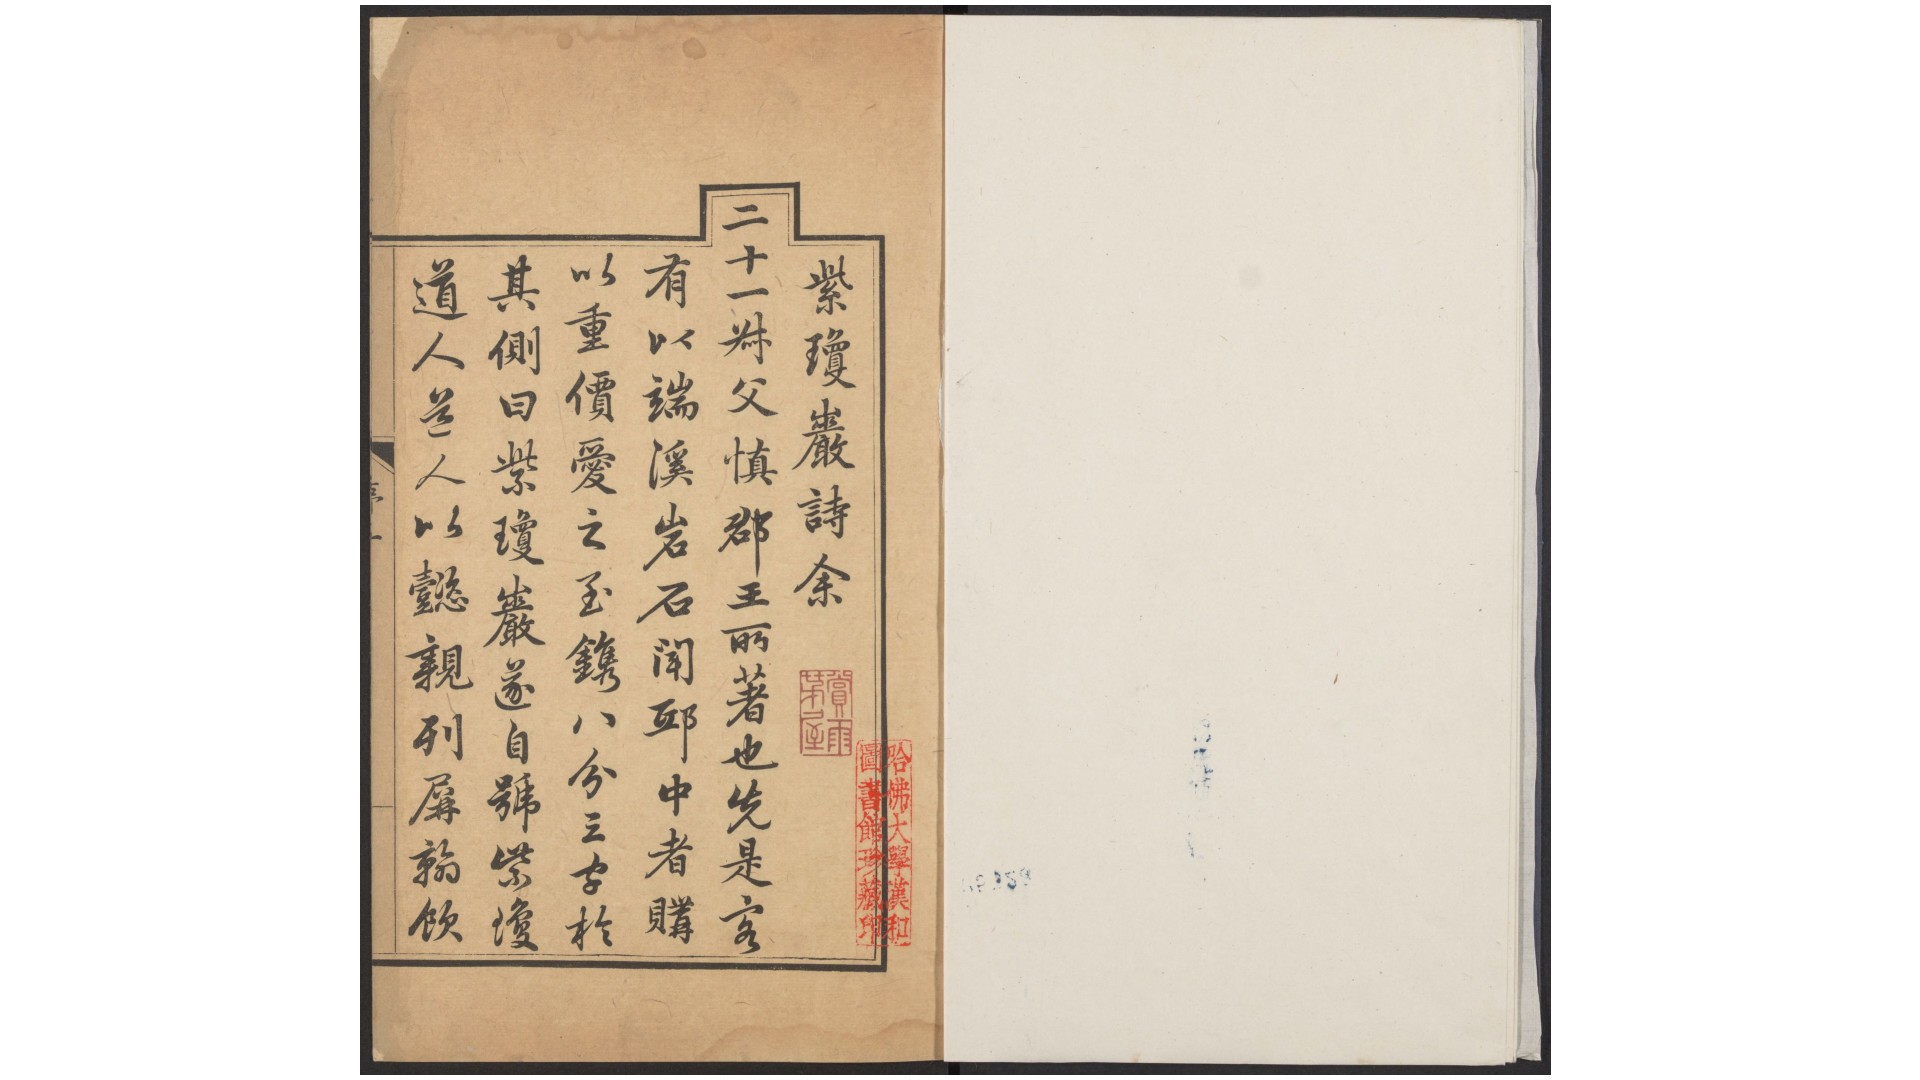 紫瓊巖詩余
二十一叔父慎郡王所著也先是客
有以端溪岩石聞邸中者購
以重價愛之至鐫八分三字於
其側曰紫瓊巖遂自號紫瓊
道人道人以懿親列屏翰飲
賞雨茅屋
哈佛大學漢和
圖書館珍藏印
序
一